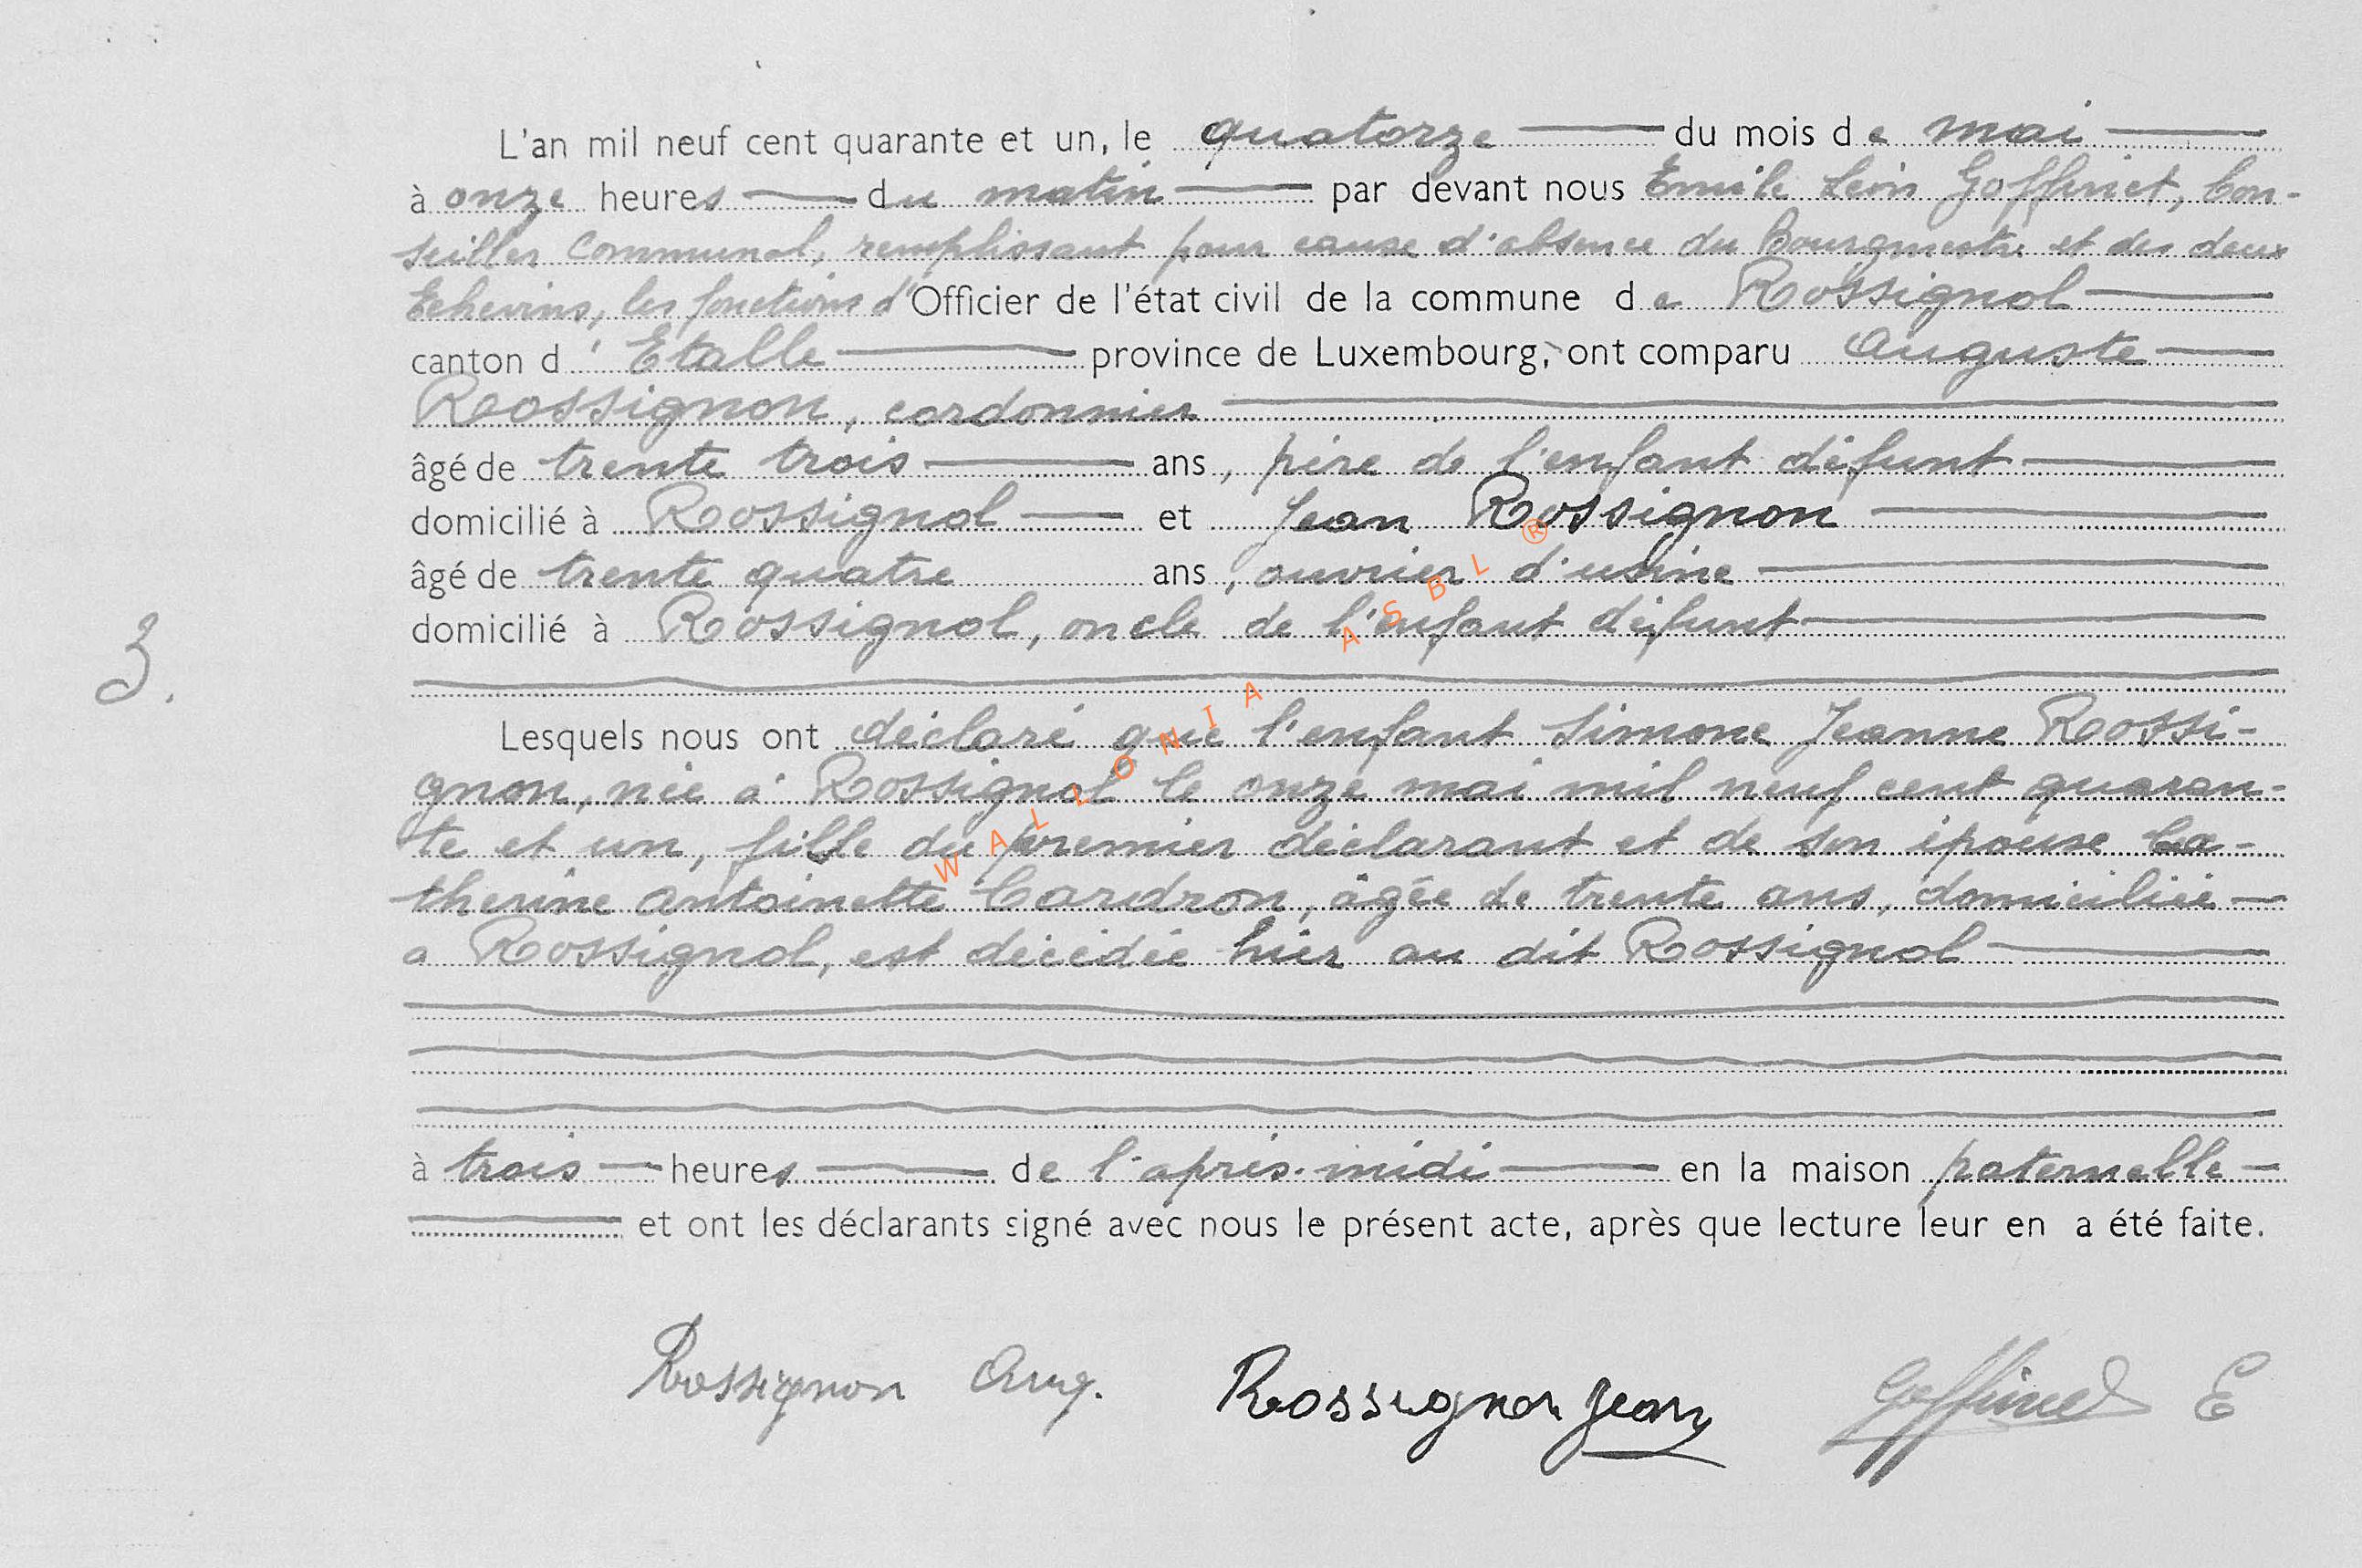 L'an mil neuf cent quarante et un, le quatorze du mois de mai
à onze heures du matin par devant nous Emile Léon Goffinet, Con-
seiller Communal, remplissant pour cause d'absence du Bourgmestre et des deux
Echevins, les fonctions d'Officier de l'état civil de la commune de Rossignol
canton d'Etalle province de Luxembourg, ont comparu Auguste
Rossignon, cordonnier
âgé de trente trois ans, père de l'enfant défunt
domicilié à Rossignol et Jean Rossignon
âgé de trente quatre ans, ouvrier d'usine
domicilié à Rossignol, oncle de l'enfant défunt
3.
Lesquels nous ont déclaré que l'enfant Simone Jeanne Rossi-
gnon, née à Rossignol le onze mai mil neuf cent quaran-
te et un, fille du premier déclarant et de son épouse Ca-
therine Antoinette Caridron, âgée de trente ans, domiciliée
a Rossignol, est décédée hier au dit Rossignol
à trois heures de l'après-midi en la maison paternelle
et ont les déclarants signé avec nous le présent acte, après que lecture leur en a été faite.
Rossignon Aug. Rossignon Jean Goffinet E
WALLONIA ASBL ®